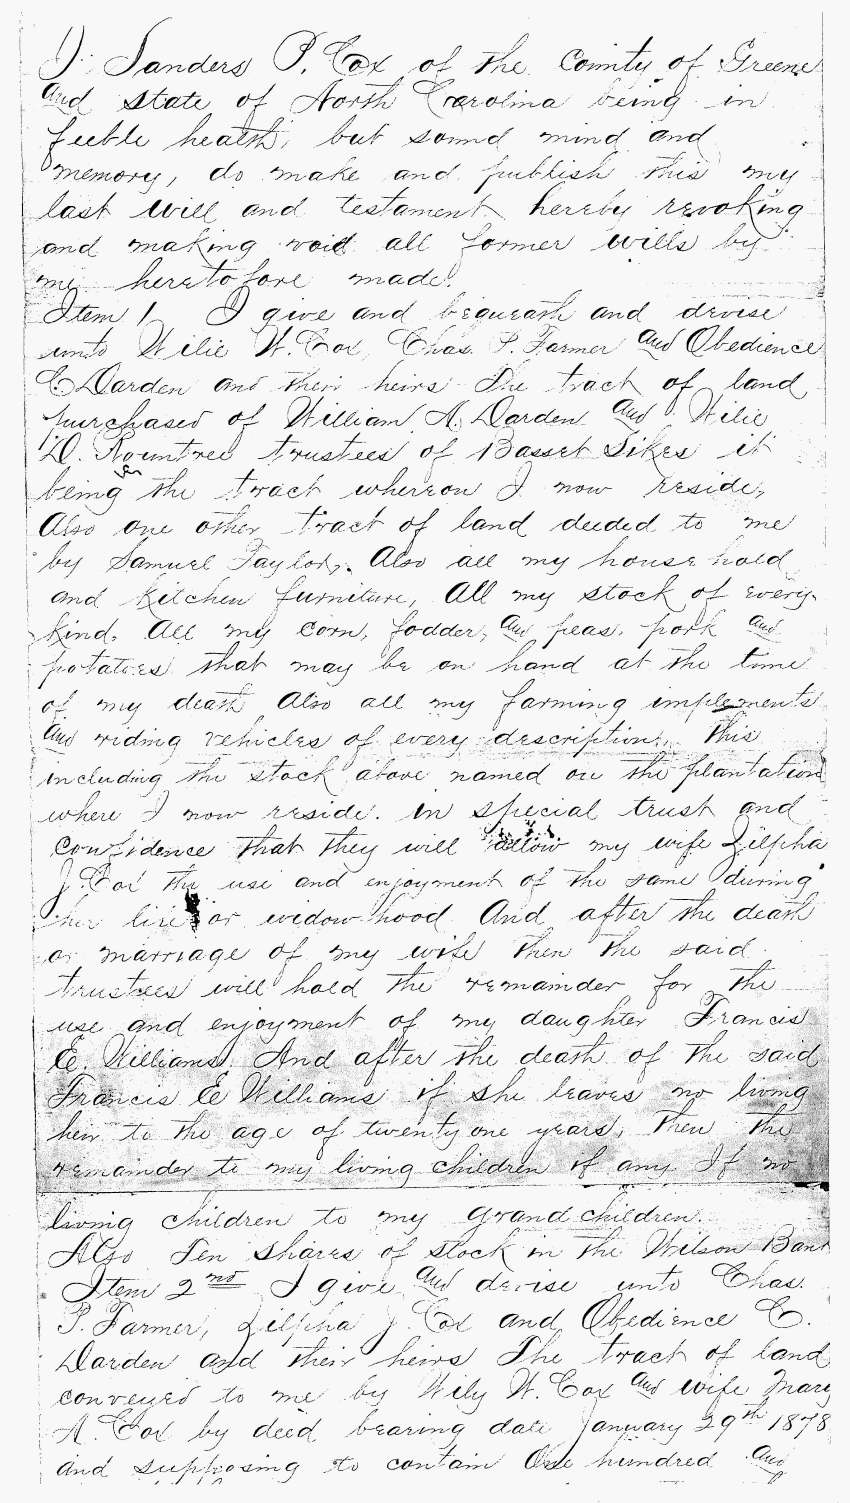 I, Sanders P. Cox of the County of Greene
and state of North Carolina being in
feeble health, but sound mind and
memory, do make and publish this my
last will and testament hereby revoking
and making void all former wills by
me heretofore made.
Item 1 I give and bequeath and devise
unto Wilie W. Cox, Chas. P. Farmer and Obedience
C Darden and their heirs The tract of land
purchased of William A. Darden and Wilie
D. Rountree trustees of Basset Sikes it
being the tract whereon I now reside,
Also one other tract of land deeded to me
by Samuel Taylor,. Also all my household
and kitchen furniture, All my stock of every
kind. All my corn, fodder, and peas, pork and
potatoes that may be on hand at the time
of my death Also all my farming implements
and riding vehicles of every description, this
including the stock above named on the plantation
where I now reside. in special trust and
confidence that they will allow my wife Zilpha
J. Cox the use and enjoyment of the same during
her life or widowhood And after the death
or marriage of my wife then the said
trustees will hold the remainder for the
use and enjoyment of my daughter Francis
E. Williams, And after the death of the said
Francis E Williams if she leaves no living
heir to the age of twenty one years, then the
remainder to my living children if any If no
living children to my grand children.
Also Ten shares of stock in the Wilson Bank
Item 2nd I give and devise unto Chas.
P. Farmer, Zilpha J. Cox and Obedience C.
Darden and their heirs The tract of land
conveyed to me by Wily W. Cox and wife Mary
A. Cox by deed bearing date January 29th 1878
and supposing to contain One hundred and